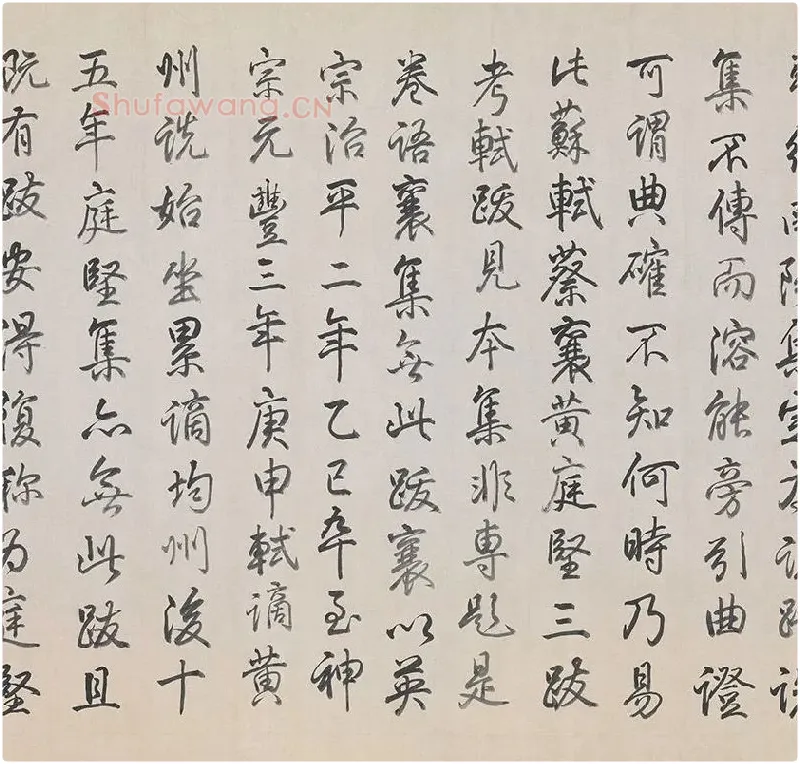 集
集不傳而溶能旁引曲證
可謂典確不知何時乃易
此蘇軾蔡襄黃庭堅三跋
考軾跋見本集非專題是
卷語襄集無此跋襄以英
宗治平二年乙巳卒至神
宗元豐三年庚申軾謫黃
州詵始坐累謫均州後十
五年庭堅集亦無此跋且
有跋安得復稱為庭堅
Shufawang.CN